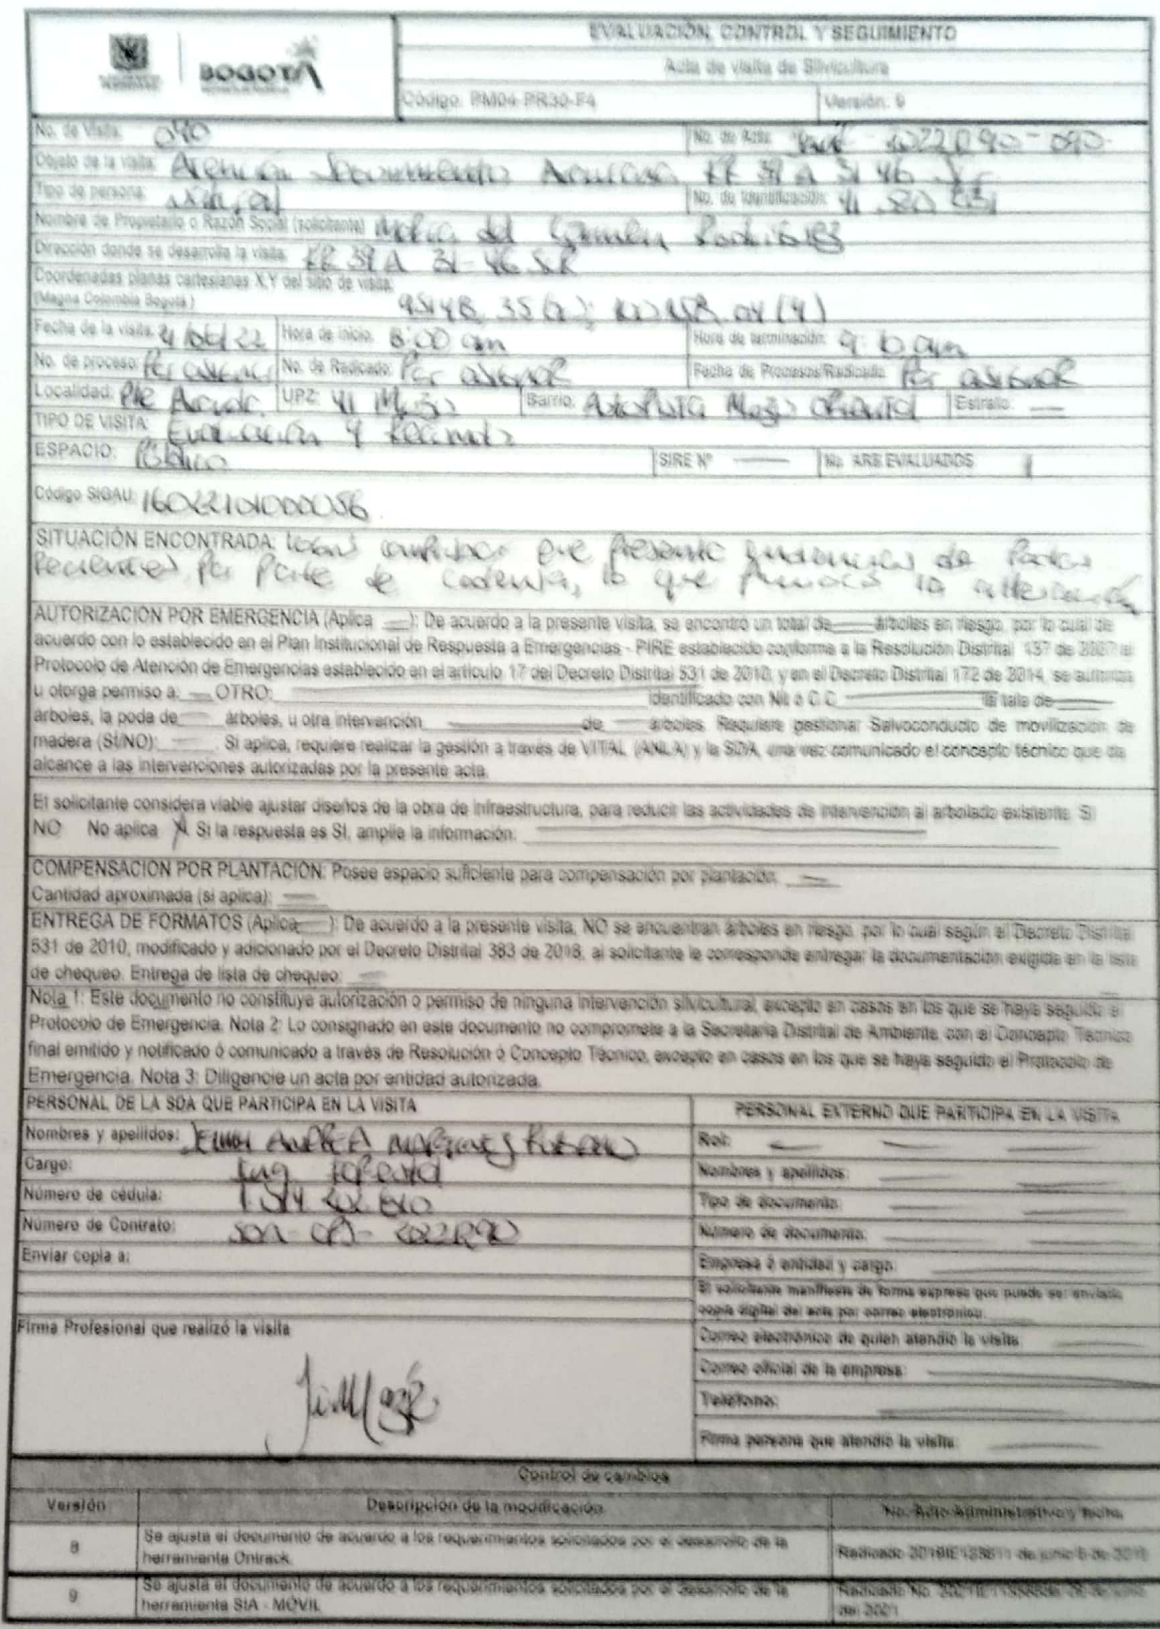 BOGOTÁ
EVALUACIÓN, CONTROL Y SEGUIMIENTO
Acta de visita de Silvicultura
Código: PM04-PR30-F4 Versión: 9
No. de Visita: 090 No. de Acta: 2022090-090
Objeto de la visita: Atención KR 39 A 31 46 Sur
Tipo de persona: No. de Identificación: 41
Nombre de Propietario o Razón Social (solicitante) María del Carmen Rodríguez
Dirección donde se desarrolla la visita: KR 39 A 31-46 SR
Coordenadas planas cartesianas X,Y del sitio de visita:
(Magna Colombia Bogotá)
Fecha de la visita: Hora de inicio: 8:00 am Hora de terminación: am
No. de proceso: Por asignar No. de Radicado: Por asignar Fecha de Procesos/Radicado: Por asignar
Localidad: Pte Aranda. UPZ: 41 Muzú Barrio: Autopista Muzú Oriental Estrato:
TIPO DE VISITA: Evaluación y
ESPACIO: Público SIRE N° No. ARB EVALUADOS 1
Código SIGAU:
SITUACIÓN ENCONTRADA: que presenta evidencias de Podas
Recientes por parte de codensa, lo que la
AUTORIZACIÓN POR EMERGENCIA (Aplica ): De acuerdo a la presente visita, se encontró un total de árboles en riesgo, por lo cual de
acuerdo con lo establecido en el Plan Institucional de Respuesta a Emergencias - PIRE establecido conforme a la Resolución Distrital 137 de 2007 el
Protocolo de Atención de Emergencias establecido en el artículo 17 del Decreto Distrital 531 de 2010, y en el Decreto Distrital 172 de 2014, se autoriza
u otorga permiso a: OTRO: identificado con Nit o C.C. la tala de
árboles, la poda de árboles, u otra intervención de árboles. Requiere gestionar Salvoconducto de movilización de
madera (SI/NO): . Si aplica, requiere realizar la gestión a través de VITAL (ANLA) y la SDA, una vez comunicado el concepto técnico que da
alcance a las intervenciones autorizadas por la presente acta.
El solicitante considera viable ajustar diseños de la obra de infraestructura, para reducir las actividades de intervención al arbolado existente. SI
NO No aplica X Si la respuesta es SI, amplíe la información:
COMPENSACIÓN POR PLANTACIÓN: Posee espacio suficiente para compensación por plantación:
Cantidad aproximada (si aplica):
ENTREGA DE FORMATOS (Aplica ): De acuerdo a la presente visita, NO se encuentran árboles en riesgo, por lo cual según el Decreto Distrital
531 de 2010, modificado y adicionado por el Decreto Distrital 383 de 2018, al solicitante le corresponde entregar la documentación exigida en la lista
de chequeo. Entrega de lista de chequeo:
Nota 1: Este documento no constituye autorización o permiso de ninguna intervención silvicultural, excepto en casos en los que se haya seguido el
Protocolo de Emergencia. Nota 2: Lo consignado en este documento no compromete a la Secretaría Distrital de Ambiente, con el Concepto Técnico
final emitido y notificado ó comunicado a través de Resolución ó Concepto Técnico, excepto en casos en los que se haya seguido el Protocolo de
Emergencia. Nota 3: Diligencie un acta por entidad autorizada.
PERSONAL DE LA SDA QUE PARTICIPA EN LA VISITA PERSONAL EXTERNO QUE PARTICIPA EN LA VISITA
Nombres y apellidos: ANDREA Rol:
Cargo: Ing Forestal Nombres y apellidos:
Número de cédula: Tipo de documento:
Número de Contrato: Número de documento:
Enviar copia a: Empresa ó entidad y cargo:
El solicitante manifiesta de forma expresa que puede ser enviada
copia digital del acta por correo electrónico.
Firma Profesional que realizó la visita Correo electrónico de quien atendió la visita:
Correo oficial de la empresa:
Teléfono:
Firma persona que atendió la visita:
Control de cambios
Versión Descripción de la modificación No. Acto Administrativo y fecha
8 Se ajusta el documento de acuerdo a los requerimientos solicitados por el desarrollo de la
herramienta Ontrack. Radicado de junio de
9 Se ajusta el documento de acuerdo a los requerimientos solicitados por el desarrollo de la
herramienta SIA - MÓVIL. Radicado No. del 2021